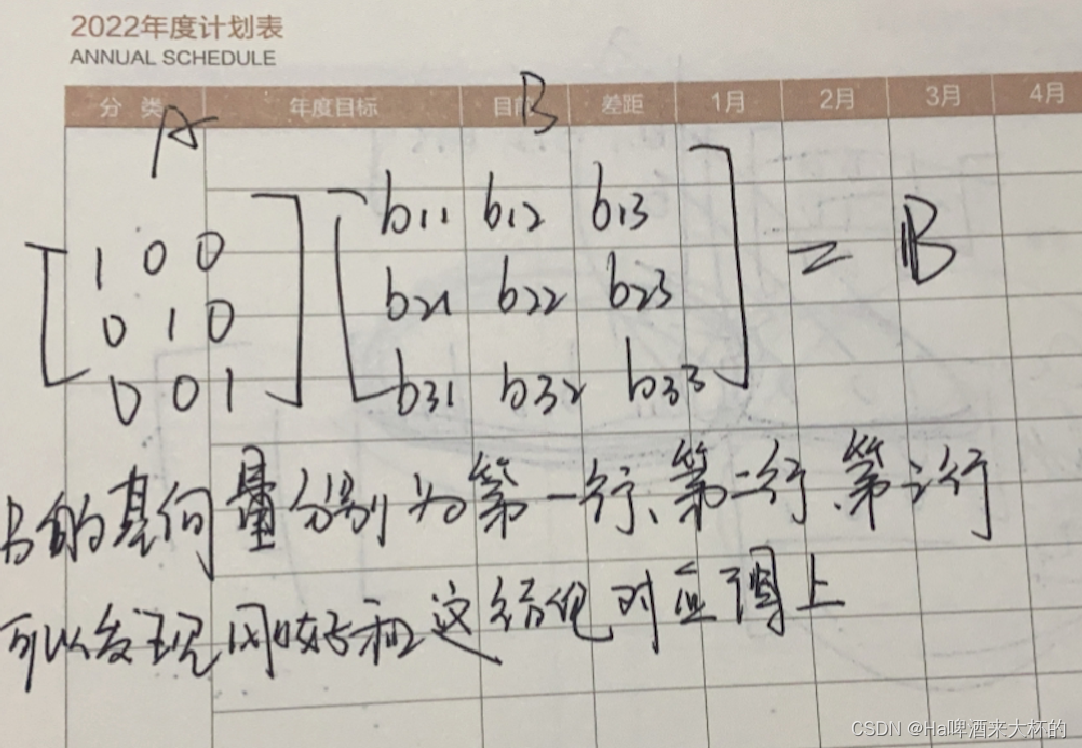 2022年度计划表
ANNUAL SCHEDULE
分 类 年度目标 目前 差距 1月 2月 3月 4月
A B
b11 b12 b13
1 0 0
= B
b21 b22 b23
0 1 0
b31 b32 b33
0 0 1
的基向量分别为第一行、第二行、第三行
可以发现刚好和这结论对应得上
CSDN @Ha啤酒来大杯的